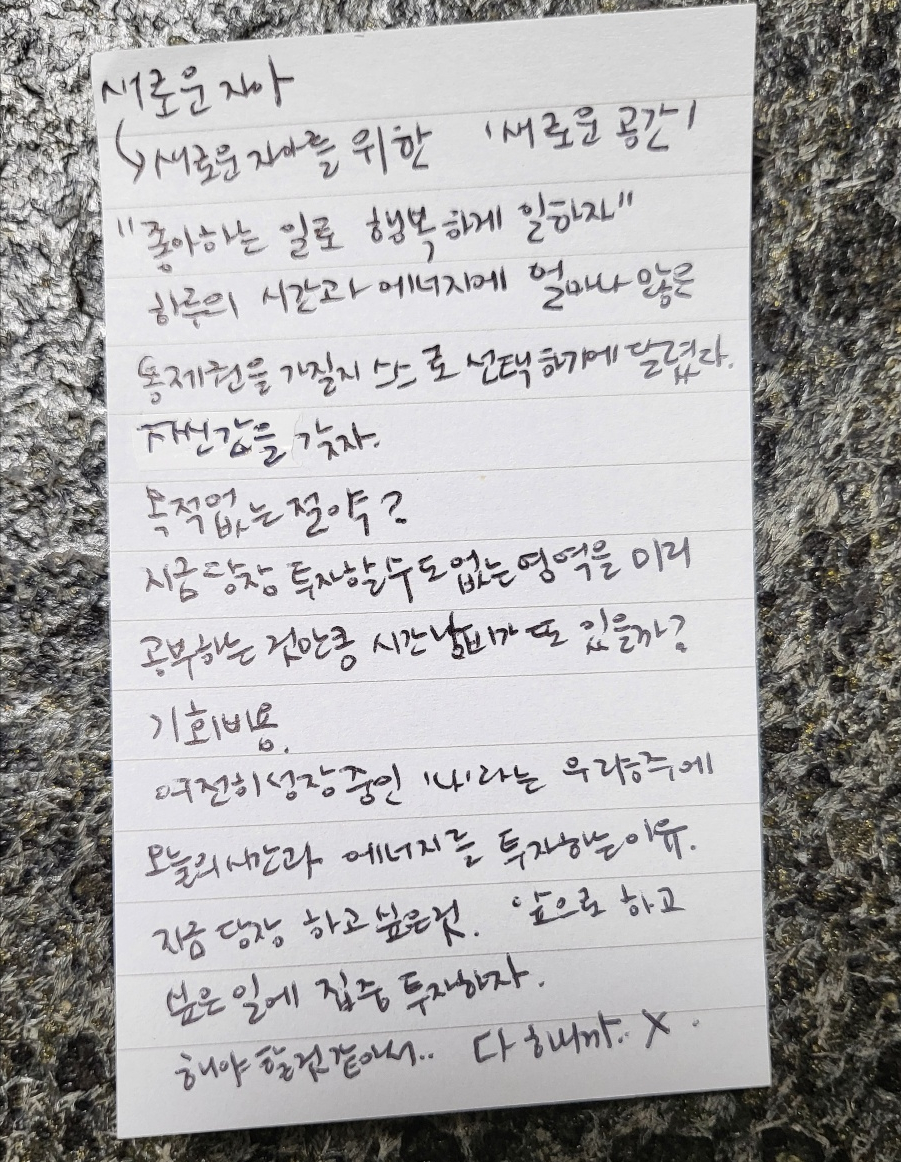 새로운 자아
↳ 새로운 자아를 위한 '새로운 공간'
"좋아하는 일로 행복하게 일하자"
하루의 시간과 에너지에 얼마나 많은
통제권을 가질지 스스로 선택하기에 달렸다.
자신감을 갖자.
목적없는 절약?
지금 당장 투자할 수도 없는 영역을 미리
공부하는 것만큼 시간낭비가 또 있을까?
기회비용.
여전히 성장중인 '나'라는 우량주에
오늘의 시간과 에너지를 투자하는 이유.
지금 당장 하고 싶은것. 앞으로 하고
싶은 일에 집중 투자하자.
해야 할것같아서.. 다 해니까.. X.